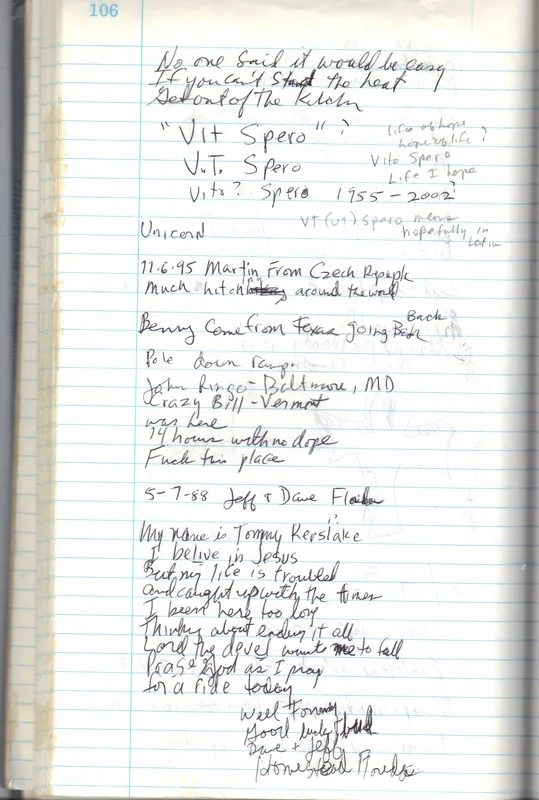 106
No one said it would be easy
If you can't stand the heat
Get out of the Kitchen
"Vit Spero" ?
life of hope
hope of life ?
V.T. Spero
Vito Spero
Life I hope
Vito? Spero 1955-2002?
VT (ut) Spero means
hopefully in
Latin
Unicorn
11.6.95 Martin From Czech
much hitch around the world
Back
Benny Come from Texas going
Pole down ramp
John Ringo - Baltimore, MD
Crazy Bill - Vermont
was here
14 hours with no dope
Fuck this place
5-7-88 Jeff & Dave Florida
My name is Tommy Kerslake
I belive in Jesus
But my life is troubled
and caught up with the times
I been here too long
Thinking about ending it all
Lord the devel wants me to fall
Prase God as I pray
for a ride today
Well Tommy
Good luck
Dave + Jeff
Homestead Florida